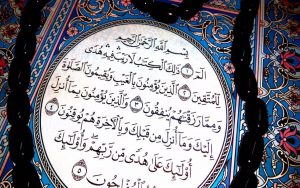 بِسْمِ ٱللَّهِ ٱلرَّحْمَٰنِ ٱلرَّحِيمِ
الٓمٓ ۝١ ذَٰلِكَ ٱلْكِتَٰبُ لَا رَيْبَ فِيهِ هُدًى
لِّلْمُتَّقِينَ ۝٢ ٱلَّذِينَ يُؤْمِنُونَ بِٱلْغَيْبِ وَيُقِيمُونَ ٱلصَّلَوٰةَ
وَمِمَّا رَزَقْنَٰهُمْ يُنفِقُونَ ۝٣ وَٱلَّذِينَ يُؤْمِنُونَ بِمَآ أُنزِلَ
إِلَيْكَ وَمَآ أُنزِلَ مِن قَبْلِكَ وَبِٱلْءَاخِرَةِ هُمْ يُوقِنُونَ ۝٤
أُو۟لَٰٓئِكَ عَلَىٰ هُدًى مِّن رَّبِّهِمْ وَأُو۟لَٰٓئِكَ
هُمُ ٱلْمُفْلِحُونَ ۝٥